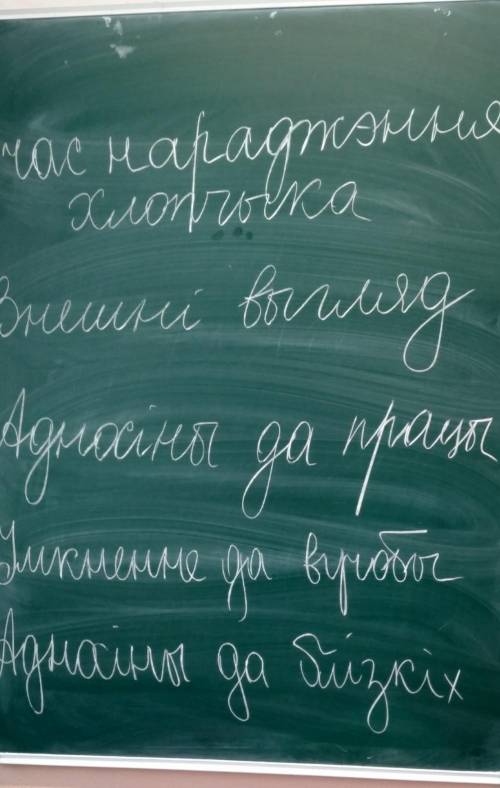 час нараджэння
хлопчыка
Знешні выгляд
Адносіны да працы
Імкненне да вучобы
Адносіны да блізкіх